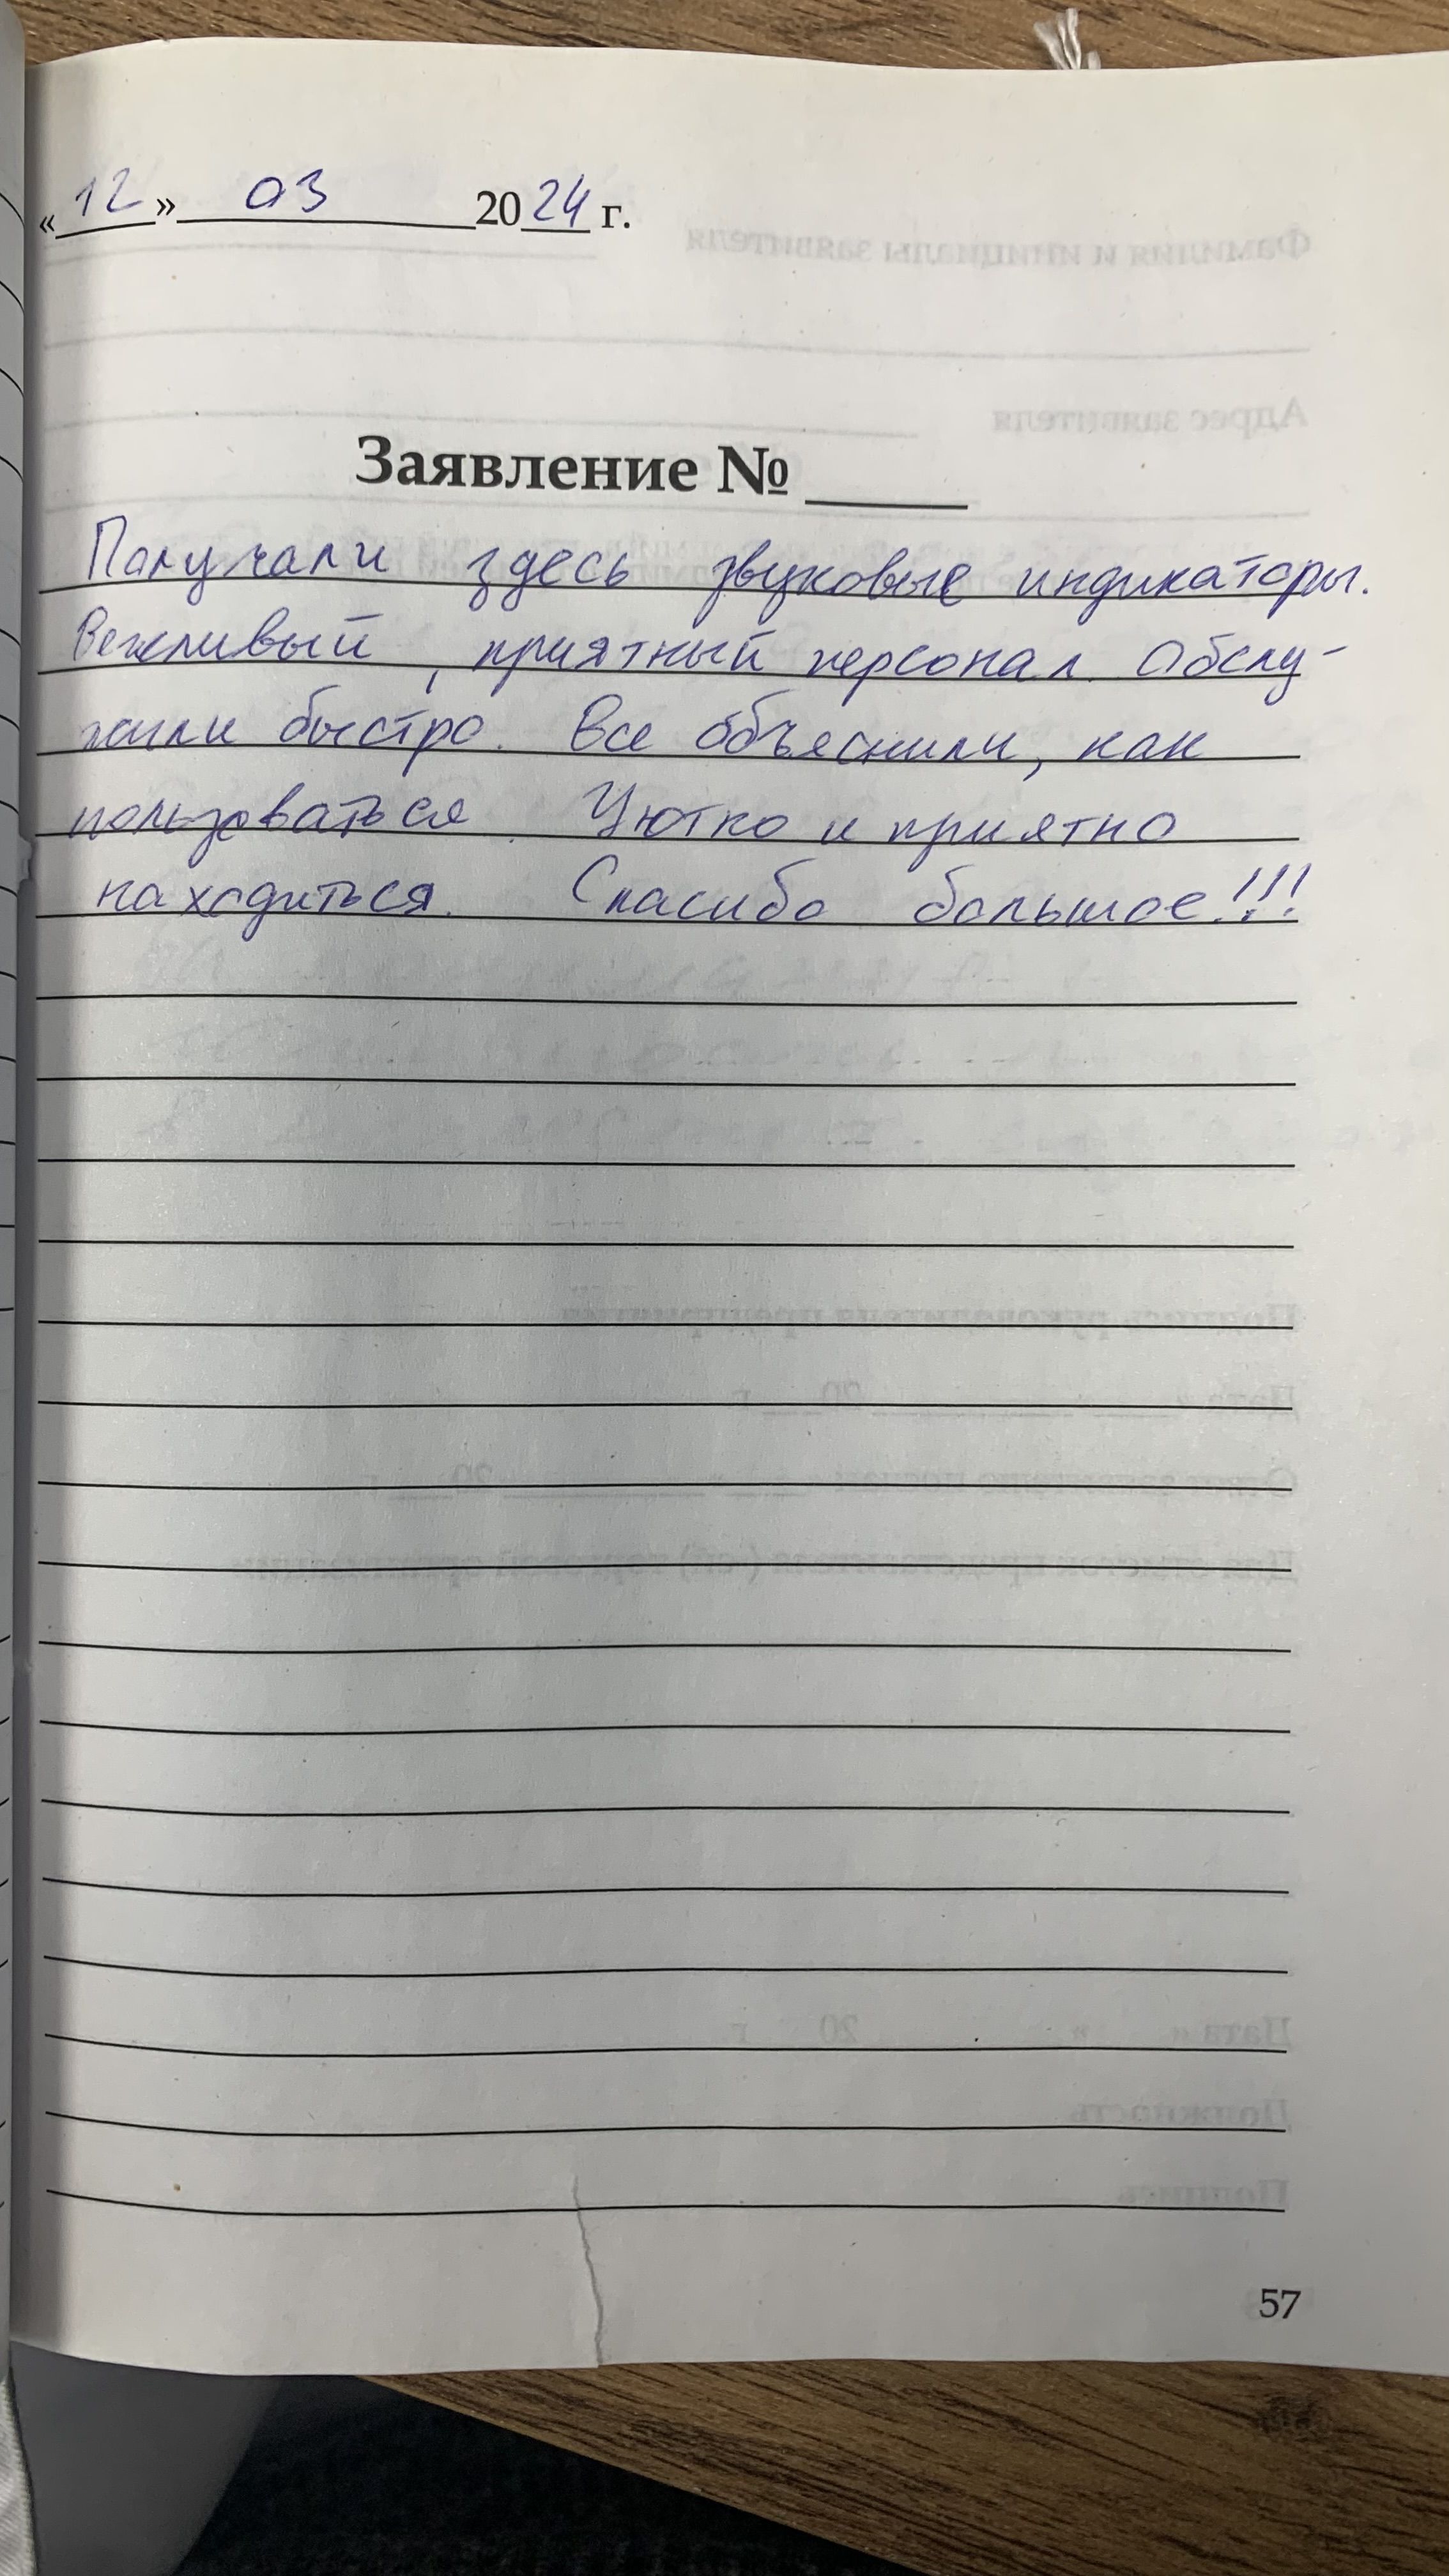 «12» 03 2024 г.
Заявление № ____
Получали здесь звуковые индикаторы.
Вежливый, приятный персонал. Обслу-
жили быстро. Все объяснили, как
пользоваться. Уютно и приятно
находиться. Спасибо большое!!!
57